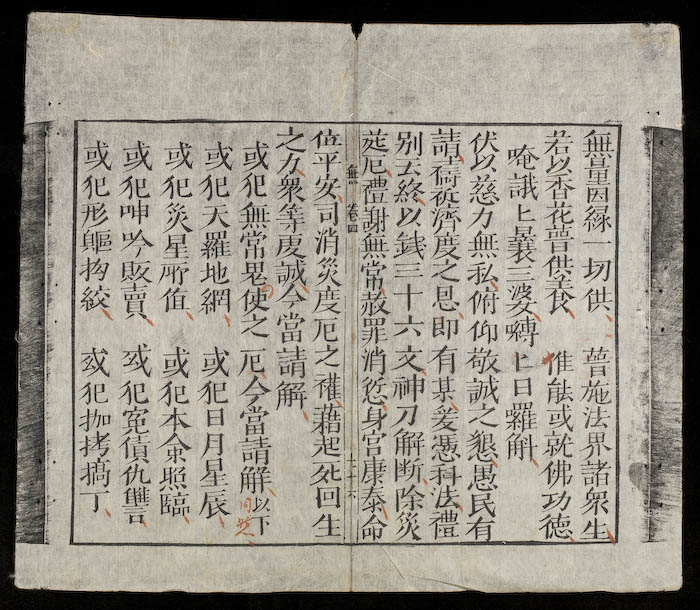 無量因緣一切供、 普施法界諸衆生
若以香花普供養食 惟能或就佛功德、
唵誐㘴曩三婆嚩㘴日羅斛、
伏以慈力無私、俯仰敬誠之懇、愚民有
請、禱祈濟度之恩、即有某爰憑科法、禮
別去終、以錢三十六文、神刀解斷、除災
莚厄、禮謝無常、赦罪消愆、身宮康泰、命
位平安、司消災度厄之權、藉起死回生
之力、衆等虔誠、今當請解、
無 卷四
上十六
或犯無常鬼使之 厄、今當請解、以下同然
或犯天羅地網、 或犯日月星辰、
或犯災星所值、 或犯本命照臨、
或犯呻吟販賣、 或犯冤債仇讐、
或犯形軀拘絞、 或犯枷拷搞丁、